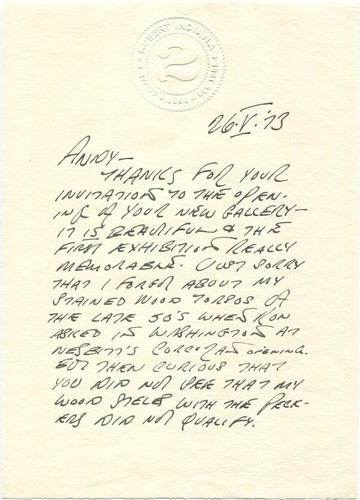 ROBERT INDIANA
2
26·V·'73
ANDY—
THANKS FOR YOUR
INVITATION TO THE OPEN-
ING OF YOUR NEW GALLERY—
IT IS BEAUTIFUL & THE
FIRST EXHIBITION REALLY
MEMORABLE. JUST SORRY
THAT I FORGOT ABOUT MY
STAINED WOOD TORSOS OF
THE LATE 50'S WHEN RON
ASKED IN WASHINGTON AT
NESBITT'S CORCORAN OPENING.
BUT THEN CURIOUS THAT
YOU DID NOT SEE THAT MY
WOOD STELES WITH THE PECK-
ERS DID NOT QUALIFY.